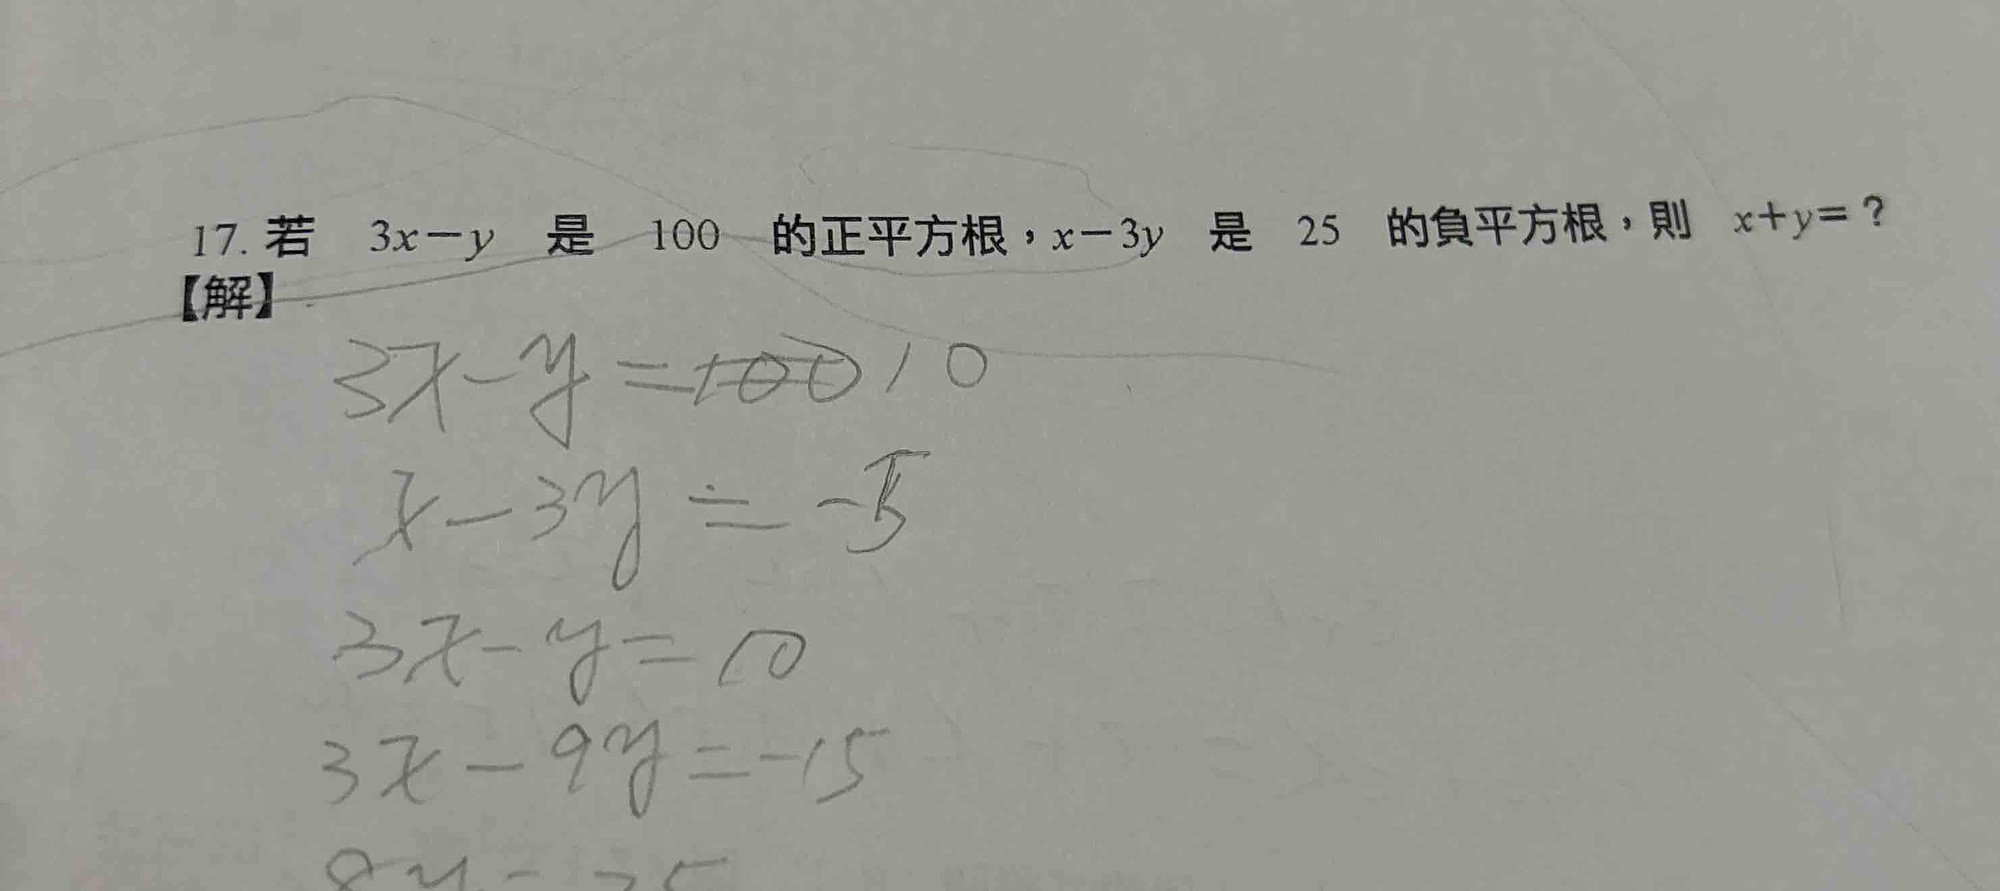 17. 若 3x－y 是 100 的正平方根，x－3y 是 25 的負平方根，則 x＋y＝？
【解】
3x-y=100 10
x-3y=-5
3x-y=10
3x-9y=-15
8y=25